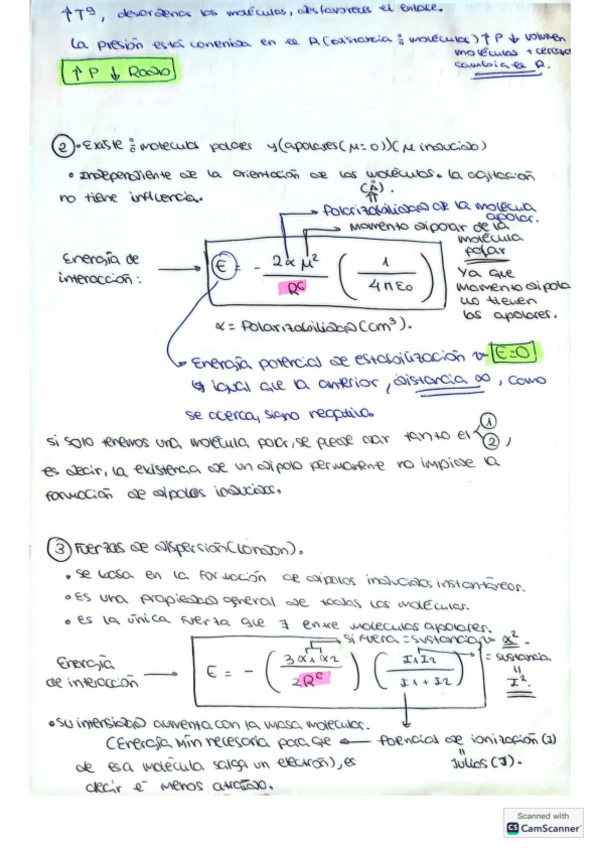 ↑Tª, desordenas las moléculas, desfavoreces el enlace.
La presión está contenida en el R (distancia moléculas) ↑P ↓ volumen
moléculas + cerca
cambia el R.
↑P ↓ Radio
② • Existe moléculas polares y (apolares (μ=0)) (μ inducido)
• Independiente de la orientación de las moléculas. La agitación
no tiene influencia.
Polarizabilidad de la molécula
apolar.
Momento dipolar de la
molécula
polar
Ya que
momento dipolar
no tienen
las apolares.
Energía de
interacción:
E = - 2αμ² / R⁶ (1 / 4πε₀)
α = Polarizabilidad (cm³).
Energía potencial de estabilización E=0
igual que la anterior, distancia ∞, como
se acerca, signo negativo.
si solo tenemos una molécula polar, se puede dar tanto el ① ②,
es decir, la existencia de un dipolo permanente no impide la
formación de dipolos inducidos.
③ Fuerzas de dispersión (London).
• se basa en la formación de dipolos inducidos instantáneos.
• Es una propiedad general de todas las moléculas.
• es la única fuerza que ∃ entre moléculas apolares.
si fuera = sustancia α².
Energía
de interacción
E = - (3α1α2 / 2R⁶) (I1I2 / I1+I2)
= sustancia
I².
• su intensidad aumenta con la masa molecular.
(Energía mín necesaria para que ← Potencial de ionización (I)
de esa molécula salga un electrón), es
Julios (J).
decir e⁻ menos atraído.
Scanned with
CS CamScanner